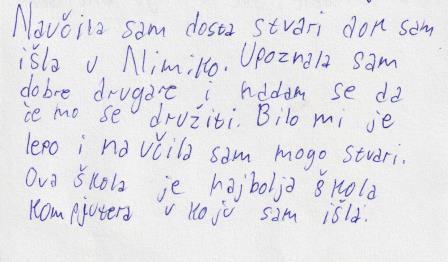 Naučila sam dosta stvari dok sam
išla u Nimiko. Upoznala sam
dobre drugare i nadam se da
će mo se družiti. Bilo mi je
lepo i naučila sam mogo stvari.
Ova škola je najbolja škola
kompjutera u koju sam išla.